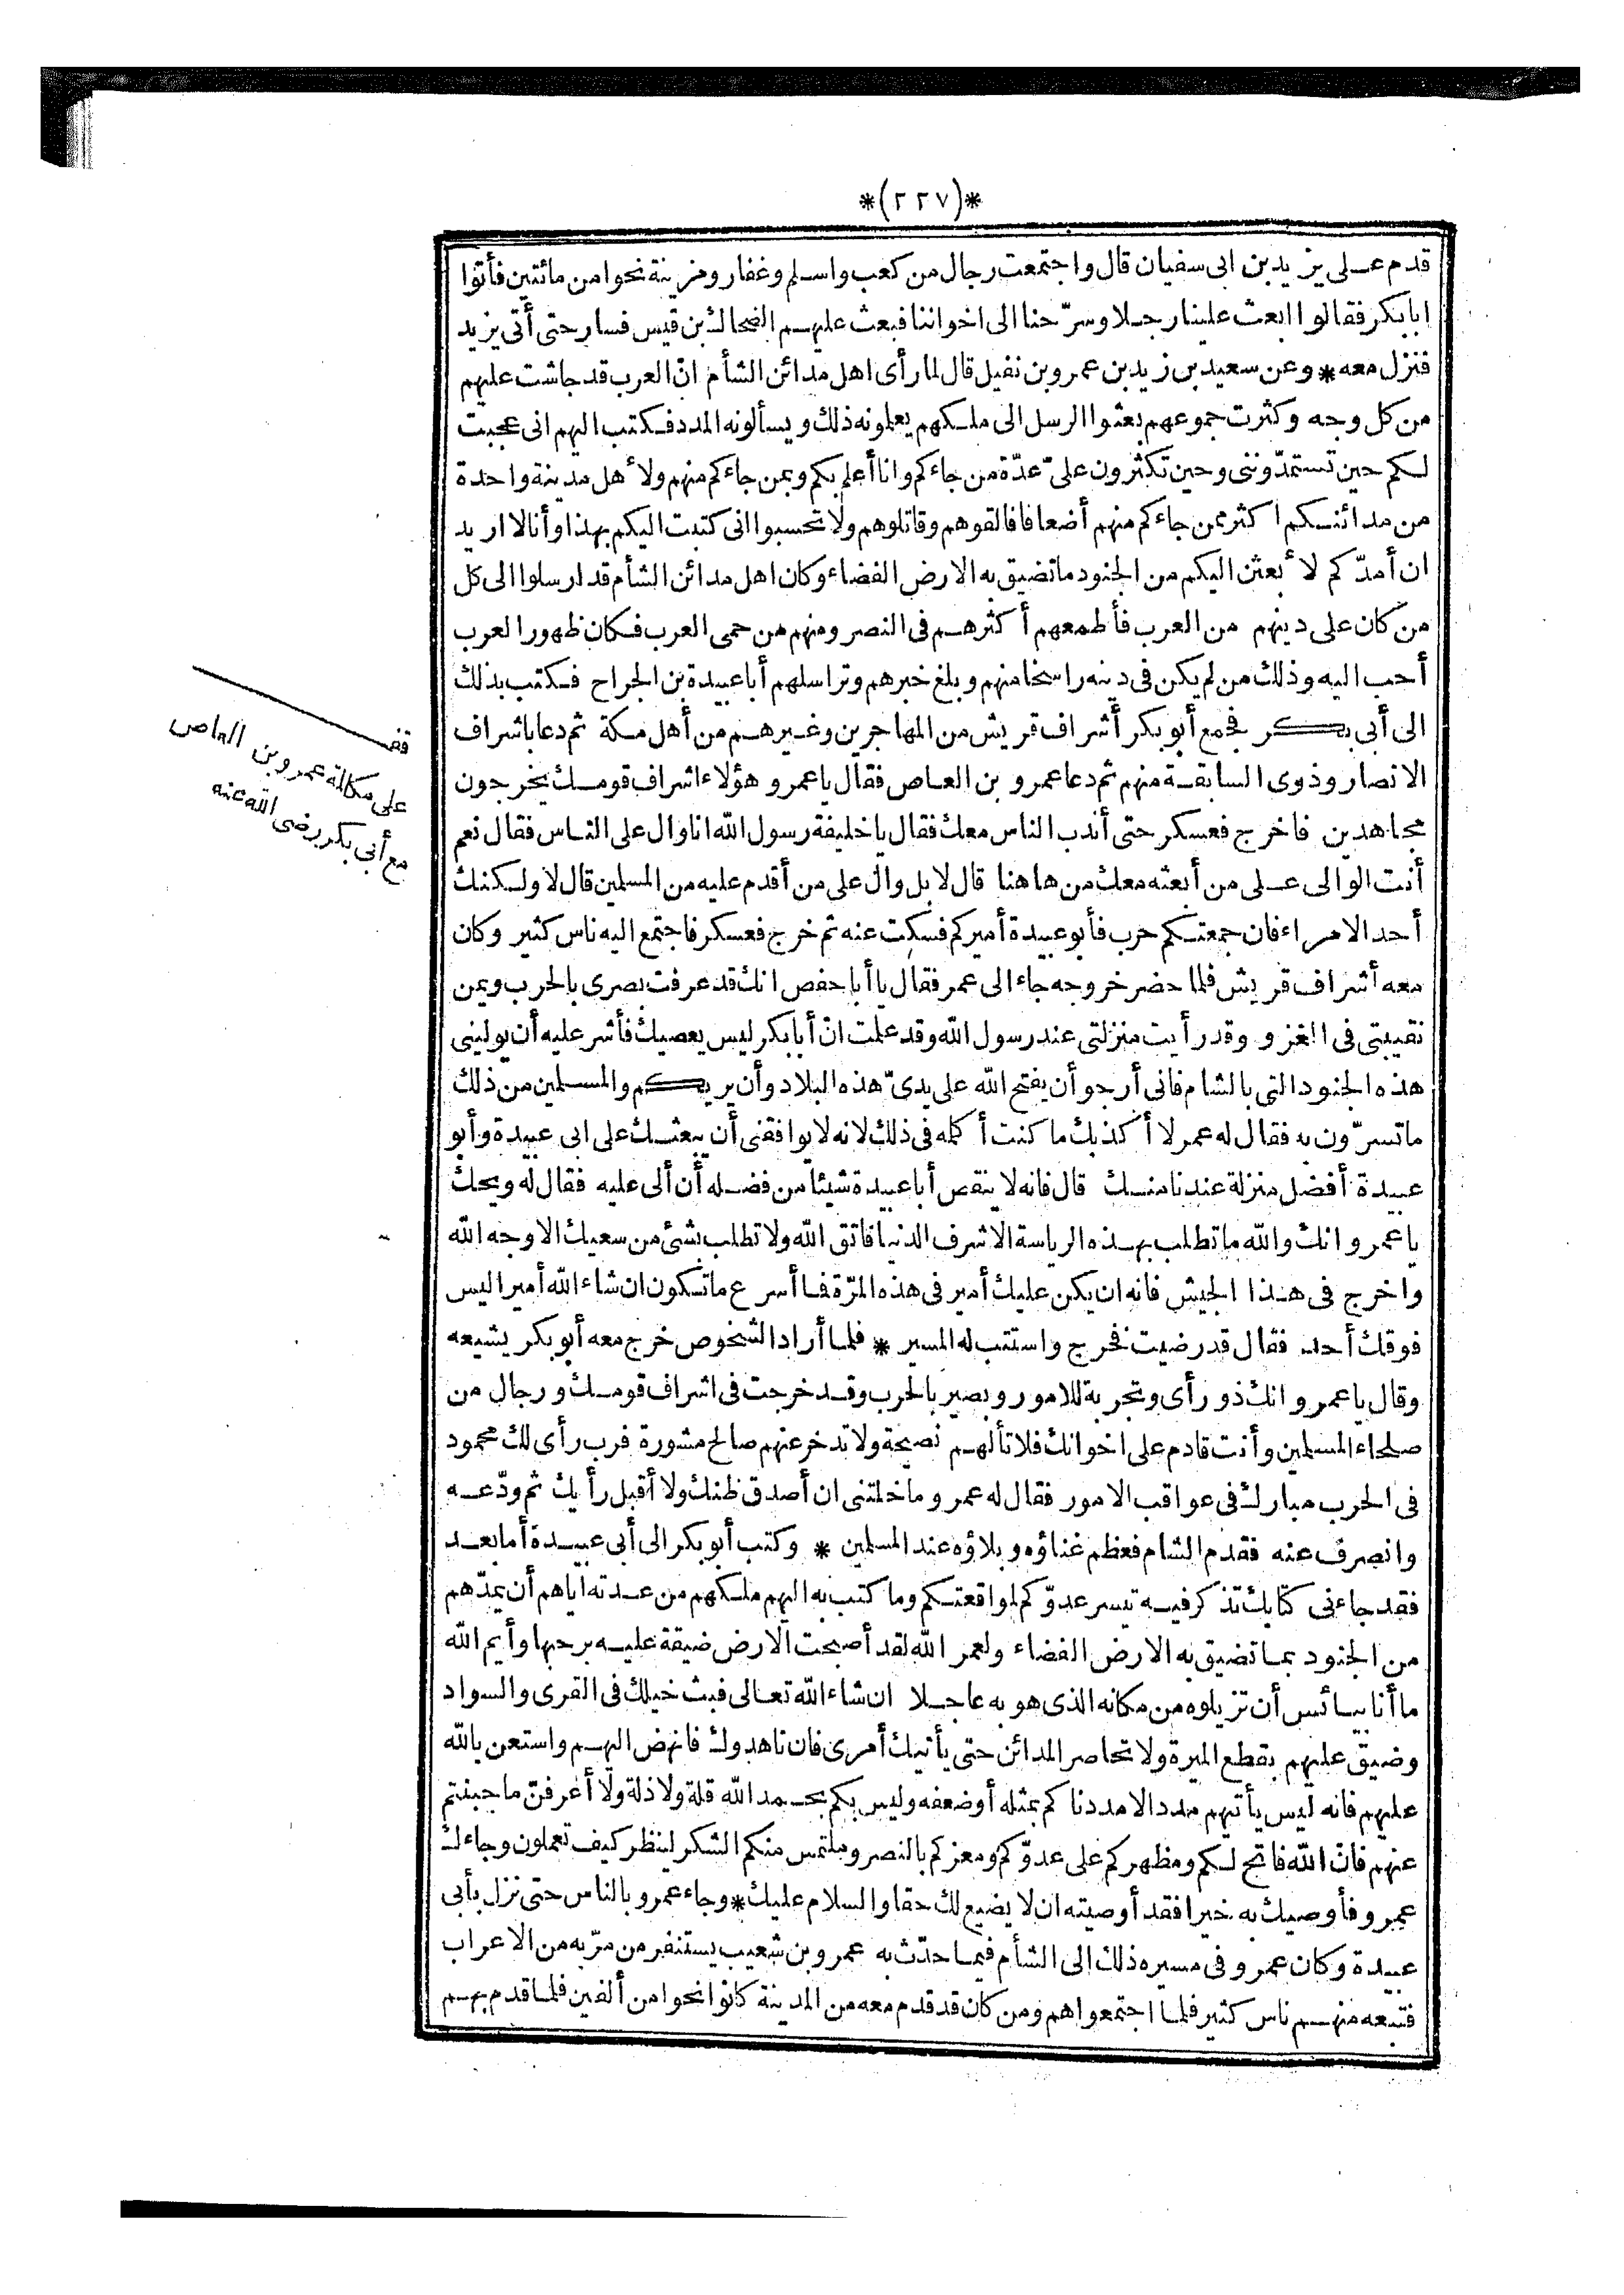 *(٢٢٧)*
قدم على يزيد بن ابى سفيان قال واجتمعت رجال من كعب واسلم وغفار ومزينة نحوا من مائتين فأتوا
ابابكر فقالوا ابعث علينا رجلا وسرّحنا الى اخواننا فبعث عليهم الضحاك بن قيس فسار حتى أتى يزيد
فنزل معه * وعن سعيد بن زيد بن عمرو بن نفيل قال لما رأى اهل مدائن الشأم انّ العرب قد جاشت عليهم
من كل وجه وكثرت جموعهم بعثوا الرسل الى ملكهم يعلمونه ذلك ويسألونه المدد فكتب اليهم انى عجبت
لكم حين تستمدّوننى وحين تكثرون علىّ عدّة من جاءكم وانا أعلم بكم وبمن جاءكم منهم ولأهل مدينة واحدة
من مدائنكم اكثر ممن جاءكم منهم أضعافا فالقوهم وقاتلوهم ولا تحسبوا انى كتبت اليكم بهذا وأنا لا اريد
ان أمدّكم لأبعثن اليكم من الجنود ما تضيق به الارض الفضاء وكان اهل مدائن الشأم قد ارسلوا الى كل
من كان على دينهم من العرب فأطمعهم أكثرهم فى النصر ومنهم من حمى العرب فكان ظهور العرب
أحب اليه وذلك من لم يكن فى دينه راسخا منهم وبلغ خبرهم وتراسلهم أبا عبيدة بن الجراح فكتب بذلك
الى أبى بكر فجمع أبو بكر أشراف قريش من المهاجرين وغيرهم من أهل مكة ثم دعا باشراف
الانصار وذوى السابقة منهم ثم دعا عمرو بن العاص فقال يا عمرو هؤلاء اشراف قومك يخرجون
مجاهدين فاخرج فعسكر حتى أندب الناس معك فقال يا خليفة رسول الله انا وال على الناس فقال نعم
أنت الوالى على من أبعثه معك من هاهنا قال لا بل وال على من أقدم عليه من المسلمين قال لا ولكنك
أحد الامراء فان جمعتكم حرب فأبو عبيدة أميركم فسكت عنه ثم خرج فعسكر فاجتمع اليه ناس كثير وكان
معه أشراف قريش فلما حضر خروجه جاء الى عمر فقال يا أبا حفص انك قد عرفت بصرى بالحرب ويمن
نقيبتى فى الغزو وقد رأيت منزلتى عند رسول الله وقد علمت انّ أبا بكر ليس يعصيك فأشر عليه أن يولينى
هذه الجنود التى بالشام فانى أرجو أن يفتح الله على يدىّ هذه البلاد وأن يريكم والمسلمين من ذلك
ما تسرّون به فقال له عمر لا أكذبك ما كنت أكلمه فى ذلك لانه لا يوافقنى أن يبعثك على ابى عبيدة وأبو
عبيدة أفضل منزلة عندنا منك قال فانه لا ينقص أبا عبيدة شيئا من فضله أن ألى عليه فقال له ويحك
يا عمرو انك والله ما تطلب بهذه الرياسة الا شرف الدنيا فاتق الله ولا تطلب بشئ من سعيك الا وجه الله
واخرج فى هذا الجيش فانه ان يكن عليك أمير فى هذه المرّة فما أسرع ما تكون ان شاء الله أميرا ليس
فوقك أحد فقال قد رضيت فخرج واستتب له المسير * فلما أراد الشخوص خرج معه أبو بكر يشيعه
وقال يا عمرو انك ذو رأى وتجربة للامور وبصير بالحرب وقد خرجت فى اشراف قومك ورجال من
صلحاء المسلمين وأنت قادم على اخوانك فلا تألهم نصيحة ولا تدخر عنهم صالح مشورة فرب رأى لك محمود
فى الحرب مبارك فى عواقب الامور فقال له عمرو ما خلتنى ان أصدق ظنك ولا أقبل رأيك ثم ودّعه
وانصرف عنه فقدم الشام فعظم غناؤه وبلاؤه عند المسلمين * وكتب أبو بكر الى أبى عبيدة أما بعد
فقد جاءنى كتابك تذكر فيه تيسر عدوّكم لمواقعتكم وما كتب به اليهم ملكهم من عدته اياهم أن يمدّهم
من الجنود بما تضيق به الارض الفضاء ولعمر الله لقد أصبحت الارض ضيقة عليه برحبها وأيم الله
ما أنا بيائس أن تزيلوه من مكانه الذى هو به عاجلا ان شاء الله تعالى فبث خيلك فى القرى والسواد
وضيق عليهم بقطع الميرة ولا تحاصر المدائن حتى يأتيك أمرى فان ناهدوك فانهض اليهم واستعن بالله
عليهم فانه ليس يأتيهم مدد الا مددناكم بمثله أو ضعفه وليس بكم بحمد الله قلة ولا ذلة ولا أعرفنّ ما جبنتم
عنهم فانّ الله فاتح لكم ومظهركم على عدوّكم ومعزكم بالنصر وملتمس منكم الشكر لينظر كيف تعملون وجاءك
عمرو فأوصيك به خيرا فقد أوصيته ان لا يضيع لك حقا والسلام عليك * وجاء عمرو بالناس حتى نزل بأبى
عبيدة وكان عمرو فى مسيره ذلك الى الشأم فيما حدّث به عمرو بن شعيب يستنفر من مرّ به من الاعراب
فتبعه منهم ناس كثير فلما اجتمعوا هم ومن كان قد قدم معه من المدينة كانوا نحوا من ألفين فلما قدم بهم
قف
على مكالمة عمرو بن العاص
مع أبى بكر رضى الله عنه